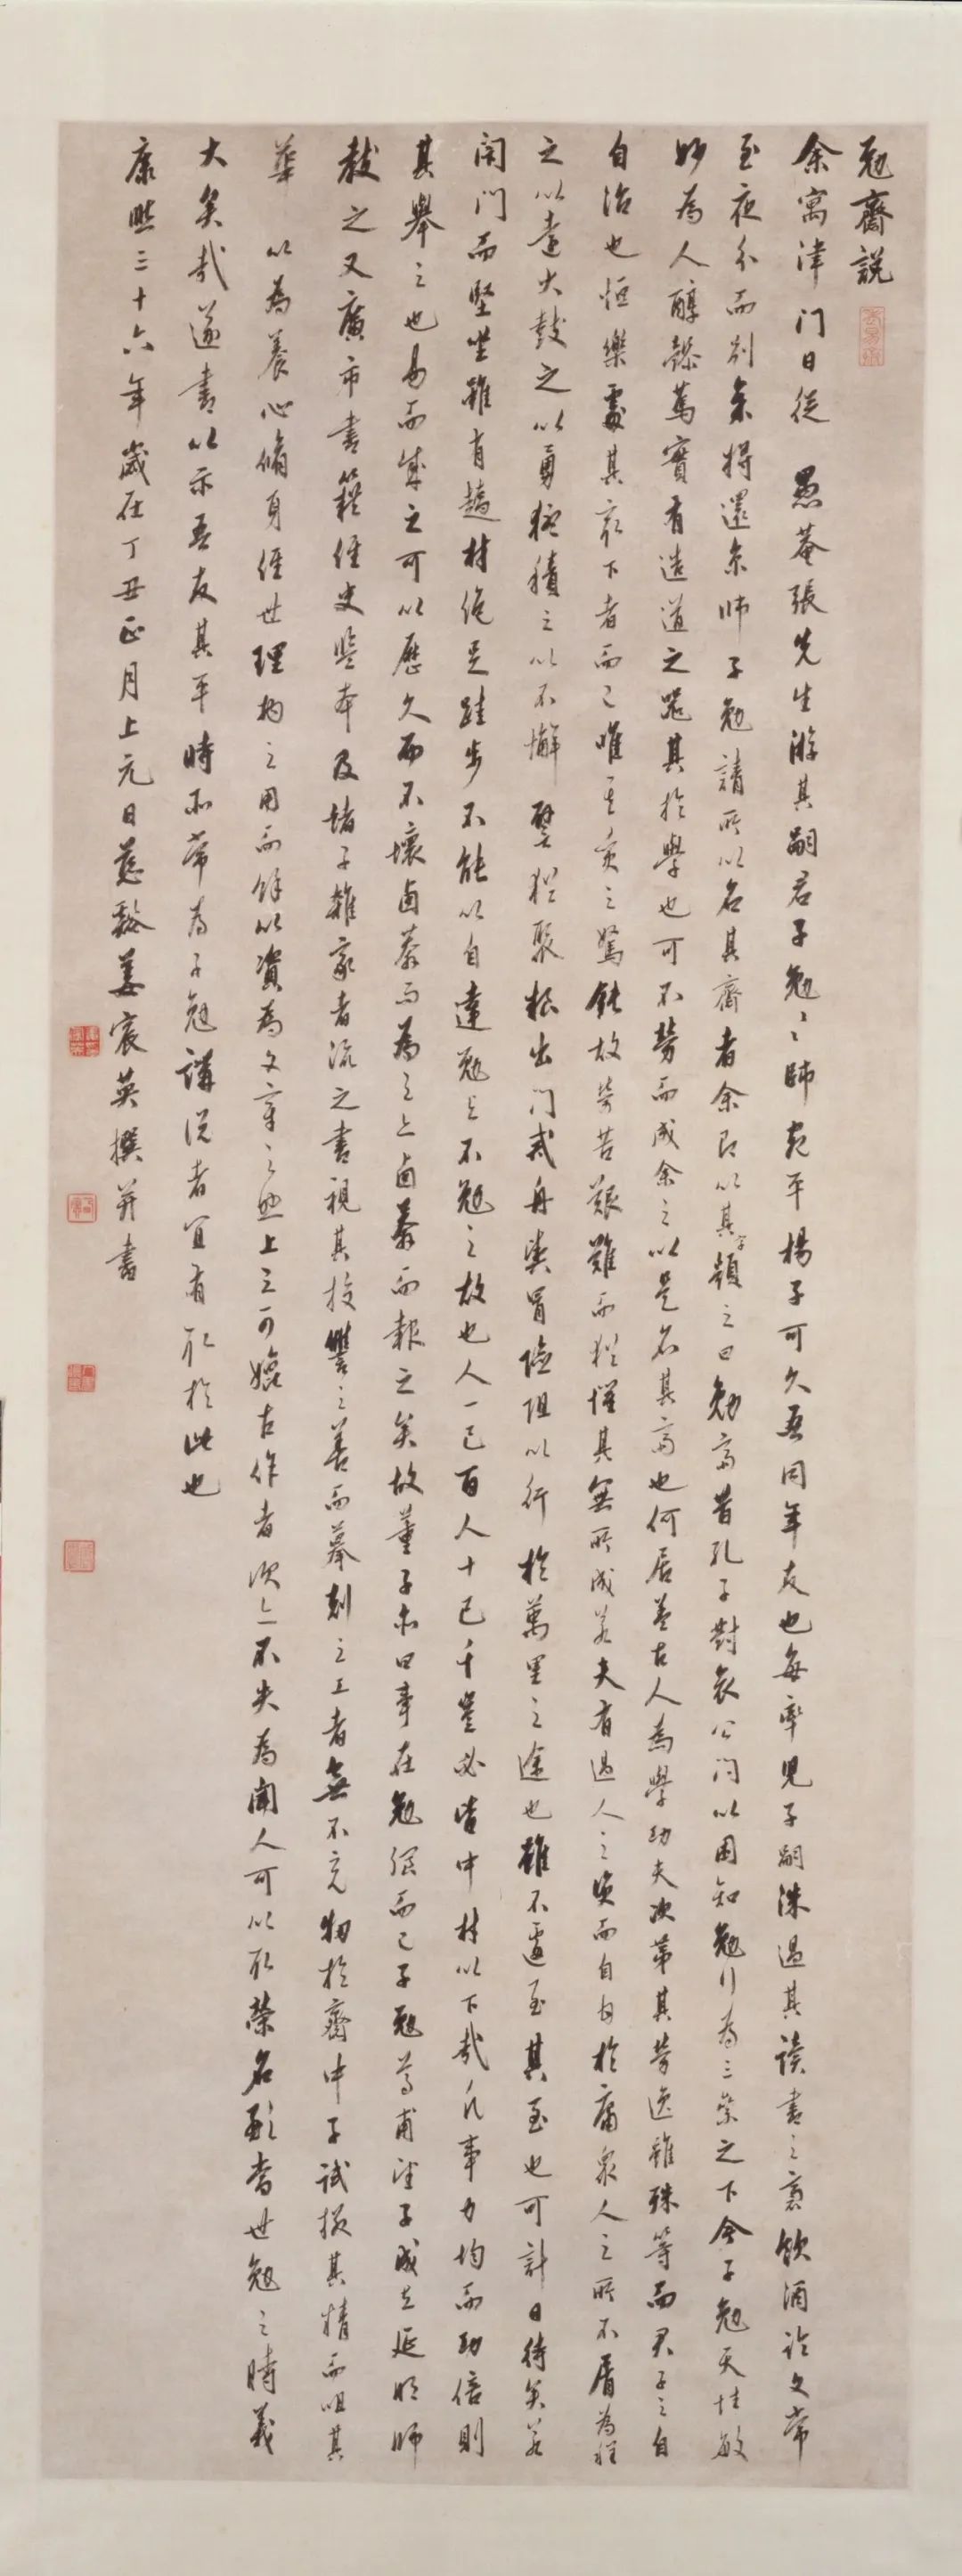 勉齋說
余寓津門日從 愚菴張先生游其嗣君子勉〻師宛平楊子可久吾同年友也每率兒子嗣洙過其讀書之裒飲酒論文常
至夜分而別余將還京師子勉請所以名其齋者余即以其字顏之曰勉齋昔孔子對哀公問以困知勉行為三等之下今子勉天性敏
妙為人醇懿篤實有造道之器其於學也可不勞而成余之以是名其齋也何居蓋古人為學功夫次第其勞逸雖殊等而君子之自
自治也恒樂處其最下者而已唯其質之駑鈍故勞苦艱難而猶懼其無所成若夫有過人之資而自甘於庸眾人之所不屑為程
之以遠大鼓之以勇猛積之以不懈譬猶聚糧出門戒舟輿冒險阻以行於萬里之途也雖不遽至其至也可計日待矣若
閉門而堅坐雖有趫材絕足跬步不能以自達勉與不勉之故也人一己百人十己千豈必皆中材以下哉凡事力均而功倍則
其舉之也易而成之可以歷久而不壞鹵莽而為之亦鹵莽而報之矣故董子亦曰事在勉强而已子勉尊甫望子成立延明師
教之又廣市書籍經史監本及諸子雜家者流之書視其校讐之善而摹刻之工者無不充牣於齋中子試擷其精而咀其
華 以為養心脩身經世理物之用而餘以資為文章之照上之可媲古作者次亦不失為聞人可以取榮名彰當世勉之時義
大矣哉遂書以示吾友其平時所常為子勉講說者宜有取於此也
康熙三十六年歲在丁丑正月上元日慈谿姜宸英撰并書